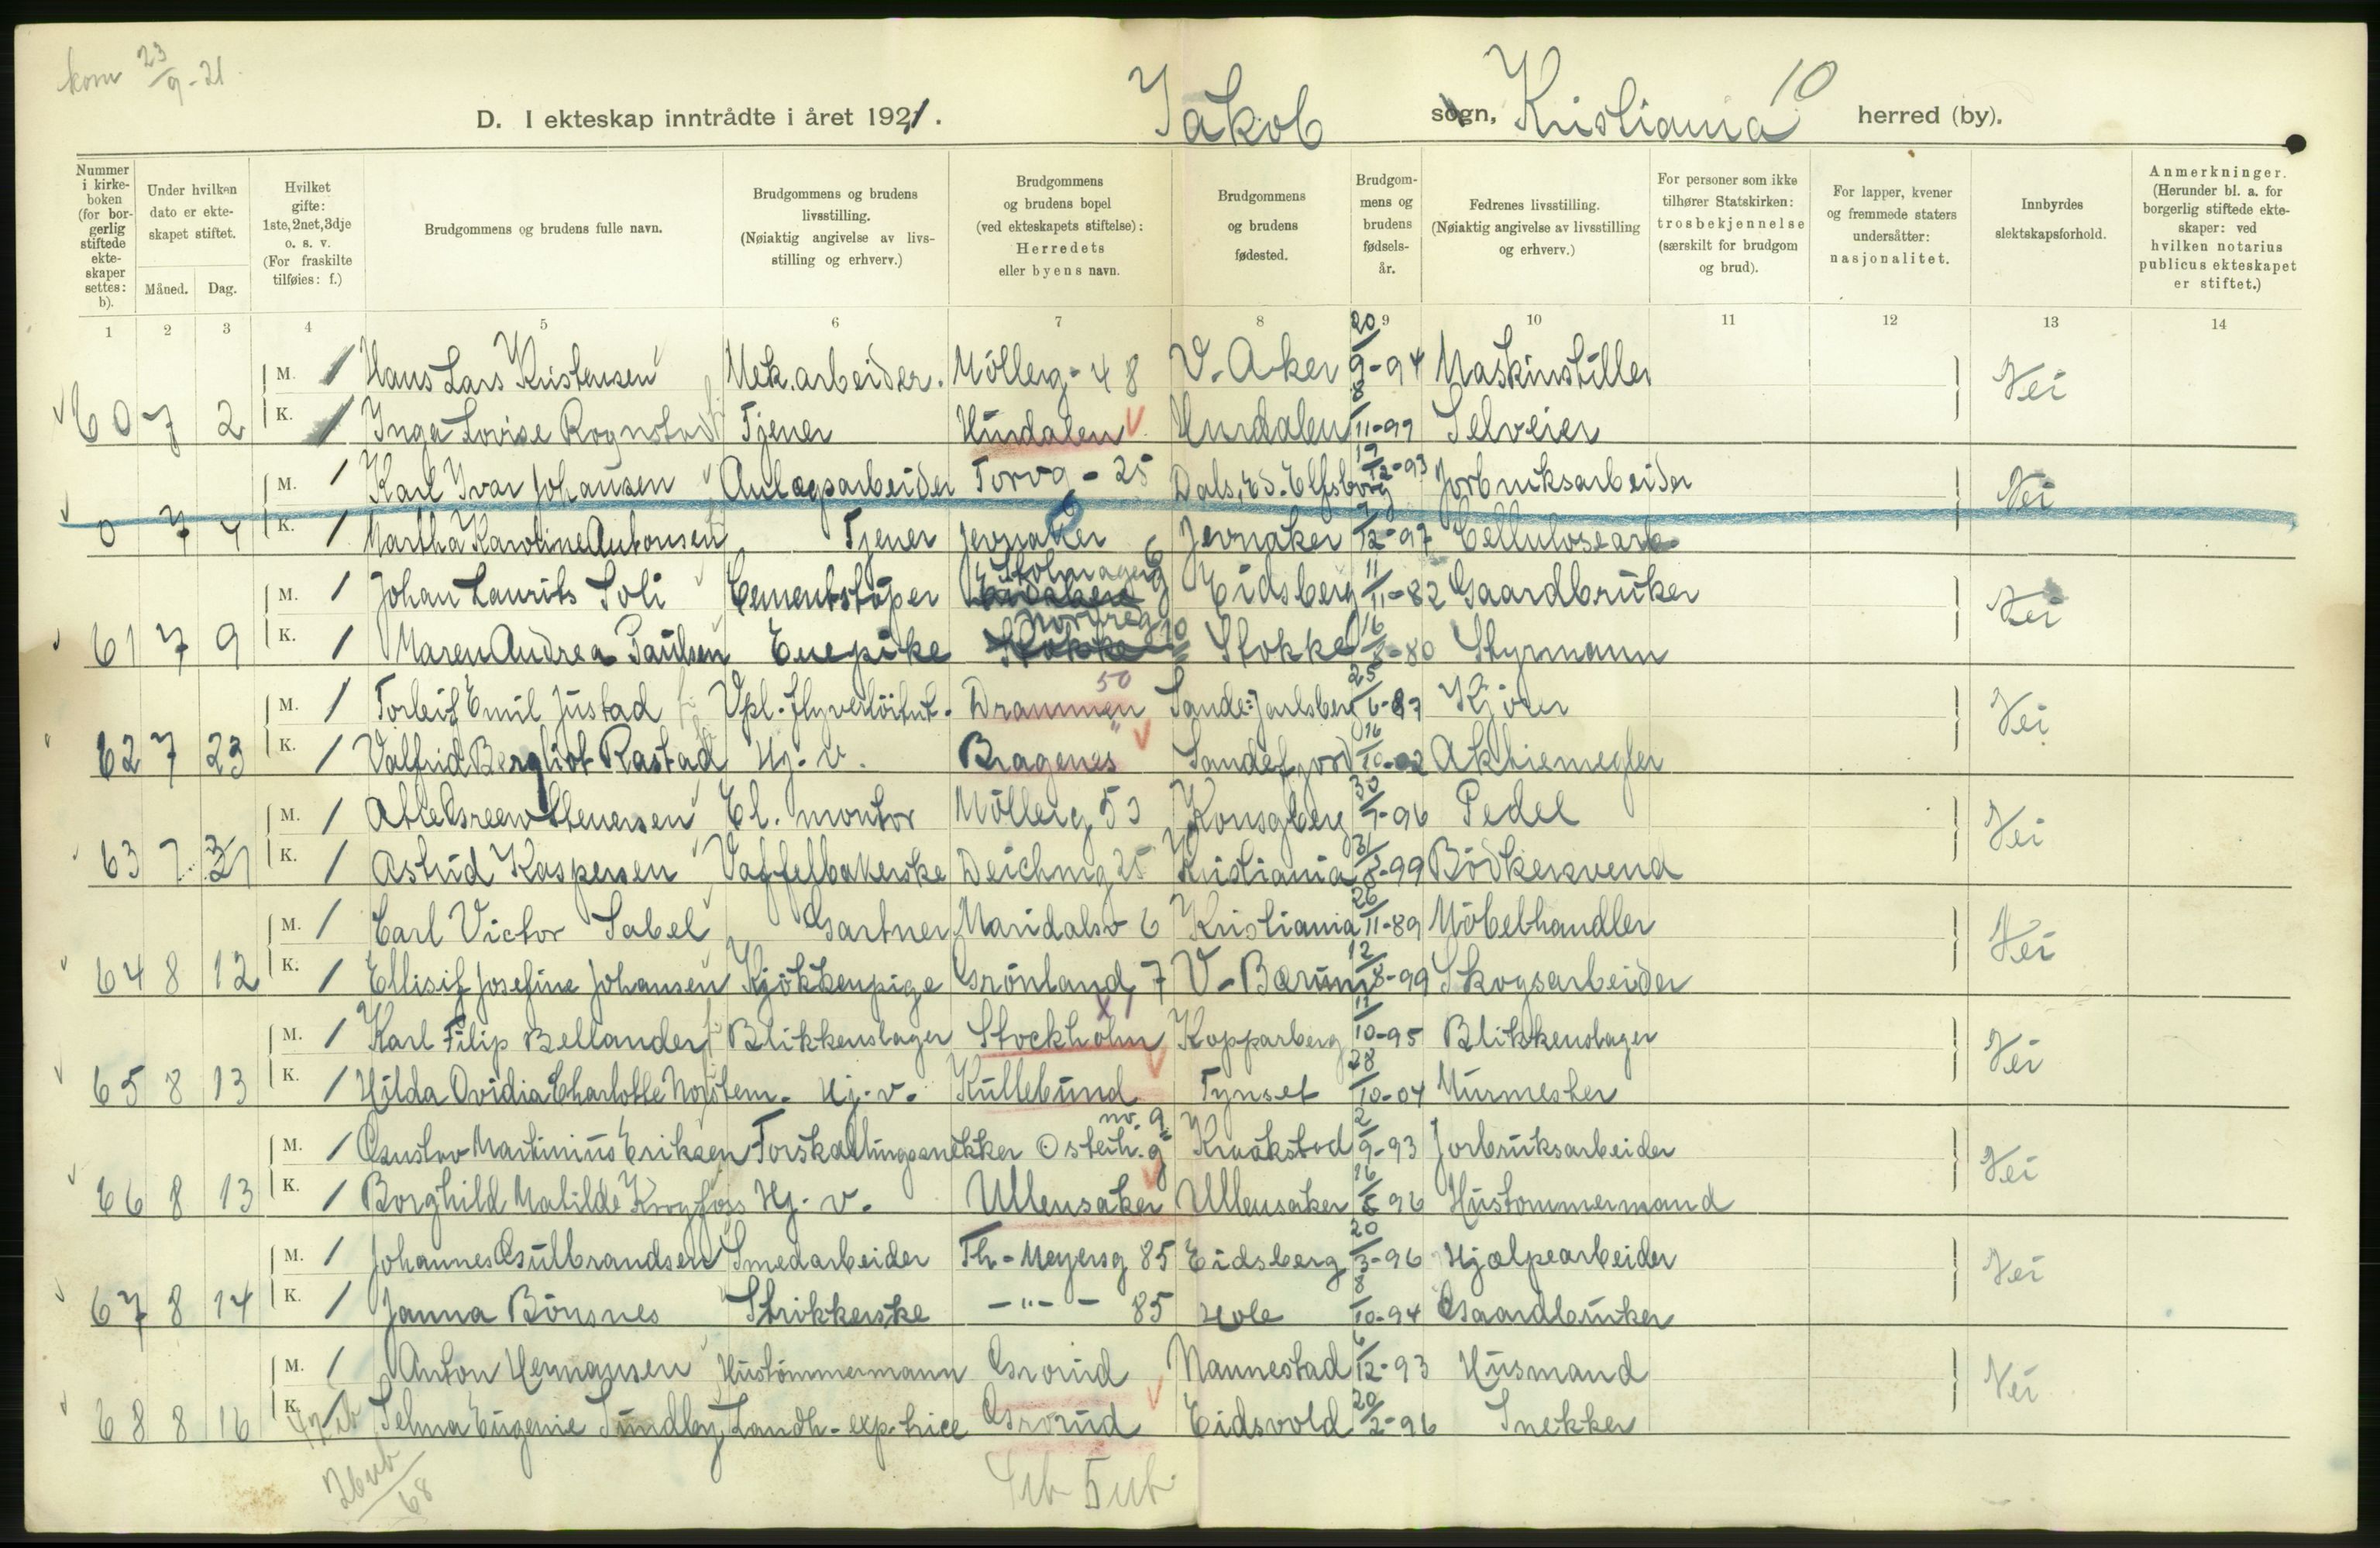 kom 23/9-21
D. I ekteskap inntrådte i året 1921. Jakob sogn, Kristiania herred (by). 10
Nummer i kirkeboken (for borgerlig stiftede ekteskaper settes: b).
Under hvilken dato er ekteskapet stiftet.
Måned. Dag.
Hvilket gifte: 1ste, 2net, 3dje o. s. v. (For fraskilte tilføies: f.)
Brudgommens og brudens fulle navn.
Brudgommens og brudens livsstilling. (Nøiaktig angivelse av livsstilling og erhverv.)
Brudgommens og brudens bopel (ved ekteskapets stiftelse): Herredets eller byens navn.
Brudgommens og brudens fødested.
Brudgommens og brudens fødselsår.
Fedrenes livsstilling. (Nøiaktig angivelse av livsstilling og erhverv.)
For personer som ikke tilhører Statskirken: trosbekjennelse (særskilt for brudgom og brud).
For lapper, kvener og fremmede staters undersåtter: nasjonalitet.
Innbyrdes slektskapsforhold.
Anmerkninger. (Herunder bl. a. for borgerlig stiftede ekteskaper: ved hvilken notarius publicus ekteskapet er stiftet.)
1 2 3 4 5 6 7 8 9 10 11 12 13 14
M. 1 Hans Lars Kristensen Mek. arbeider. Möllerg - 48 V. Aker 20/9-94 Maskinstiller Nei
60 7 2 K. 1 Inga Lovise Rognstad Tjener Hurdalen Hurdalen 8/11-99 Selveier
M. 1 Karl Ivar Johansen Anlægsarbeider Torvg - 25 Dals, Ed. Elfsborg 19/12-93 Jorbruksarbeider Nei
0 7 4 K. 1 Martha Karoline Antonsen Tjener Jevnaker Jevnaker 12-97 Celluloseark.
M. 1 Johan Laurits Soli Cementstöper Stolmagerg 6 Eidsberg 11/11-82 Gaardbruker Nei
61 7 9 K. 1 Maren Andrea Paulsen Enepike Stokke Stokke 16/8-80 Styrmann
M. 1 Torleif Emil Justad Vpl. flyverlöitnt. Drammen 50 Sande: Jarlsberg 25/6-97 Kjörer Nei
62 7 23 K. 1 Valfrid Bergliot Rastad Hj. v. Bragenes Sandefjord 16/10-02 Aktiemegler
M. 1 Atle Green Stenersen El. montör Möllerg 53 Konsgberg 30/7-96 Pedel Nei
63 7 31 K. 1 Astrid Kaspersen Vaffelbakerske Deichmg 25 Kristiania 31/8-99 Bödkersvend
M. 1 Carl Victor Sabel Gartner Maridalsv 6 Kristiania 26/11-89 Möbelhandler Nei
64 8 12 K. 1 Ellisif Josefine Johansen Kjökkenpige Grönland 7 V. Bærum 12/8-99 Skogsarbeider
M. 1 Karl Filip Bellander Blikkenslager Stockholm Kopparberg 11/10-95 Blikkenslager Nei
65 8 13 K. 1 Hilda Ovidia Charlotte Hj. v. Kullebund Tynset 28/10-04 Murmester
M. 1 Gustav Martinius Eriksen Forskallingssnekker Osterh. g nr. 9 Kraakstad 2/9-93 Jorbruksarbeider Nei
66 8 13 K. 1 Borghild Matilde Krogfoss Hj. v. Ullensaker Ullensaker 16/8 96 Hustömmermand
M. 1 Johannes Gulbrandsen Smedarbeider Th. Meyersg 85 Eidsberg 20/3-96 Hjælpearbeider Nei
67 8 14 K. 1 Janna Bönsnes Strikkerske - " - 85 Hole 8/10-94 Gaardbruker
M. 1 Anton Hermansen Hustömmermann Grorud Nannestad 6/12-93 Husmand Nei
68 8 16 K. 1 Selma Eugenie Sundby Landh. exp. trice Grorud Eidsvold 20/2-96 Snekker
42 ib
26 ub
68
4 ib 5 ub